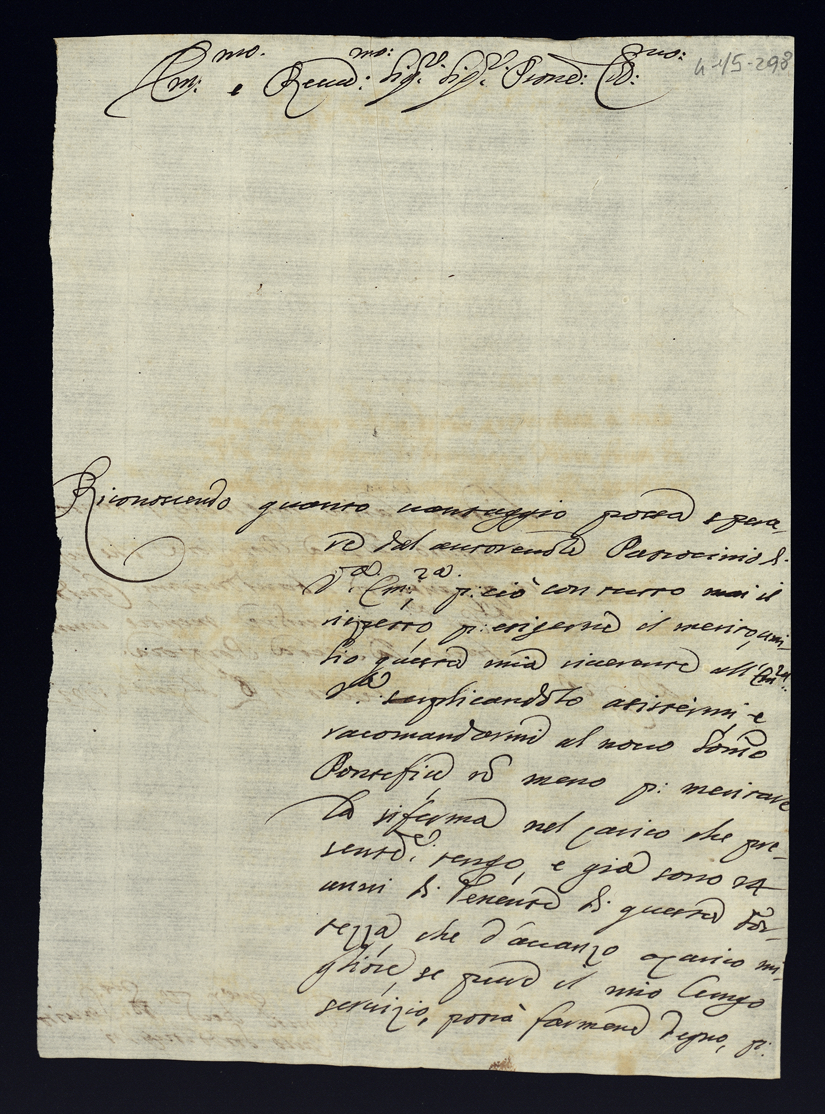 Em:mo. e Reuer:mo: Sigr: Sigr: Prone: Col:mo:
4-15-298
Riconoscendo quanto uantaggio possa spera-
re dal autoreuole Patrocinio di
Va. Em:za. p: ciò con tutto il
rispetto p: erigerme il merito, umi-
lio questa mia riuerente all' Em:za
Va. suplicandola asistermi e
racomandarmi al nouo Somo
Pontefice no meno p: meritare
la riferma nel carico che pre-
sente: tengo, e già sono 24
anni di Tenente di questa For-
tezza, che d'auanzo a carico mi-
gliore, se pure il mio lungo
seruizio, potrà farmene degno, p: